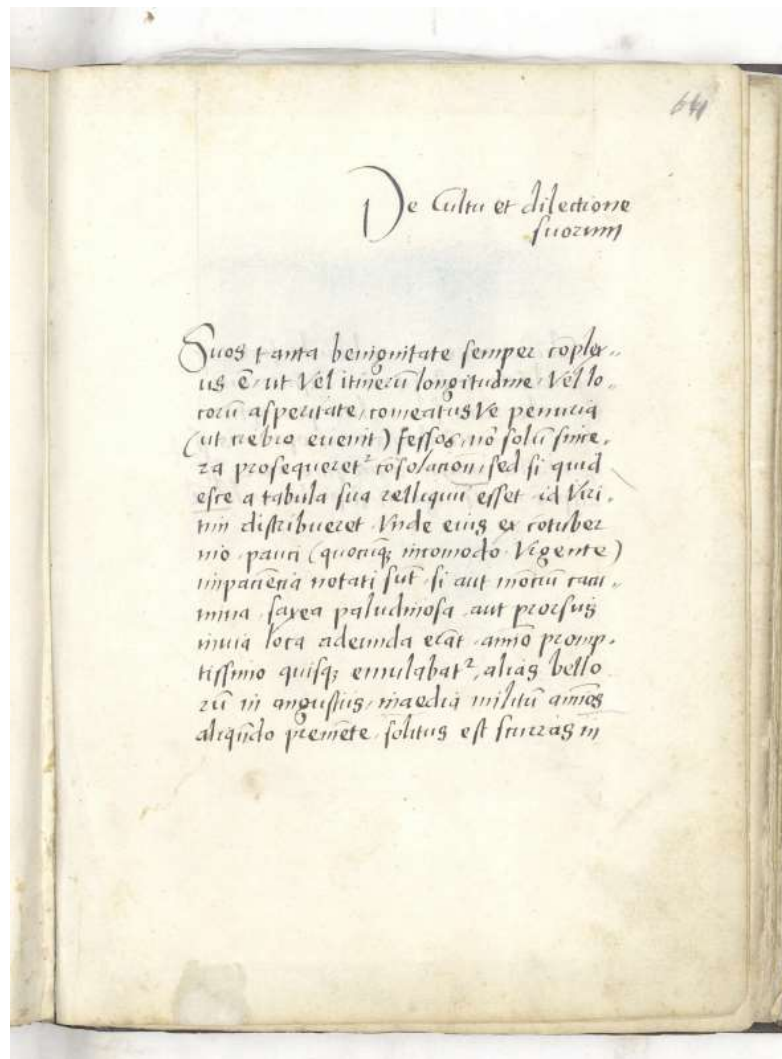 64
De Cultu et dilectione
suorum
Suos tanta benignitate semper cōplex„
us ē, ut Vel itinerū longitudine, Vel lo„
corū asperitate, comeatus Ve penuria
(ut crebro evenit) fessos, nō solū since,
ra prosequeret² cōsolation, sed si quid
esce a tabula sua relliquū esset id Viri,
tim distribueret Vnde eius ex cōtuber
nio pauci (quocūq; incomodo Vigente)
impaciēcia notati sūt si aut mōciū cacu„
mina saxea paludinosa aut prorsus
invia loca adeunda erāt animo promp,
tissimo quisq; emulabat², alias bello
rū in angustiis, inaedia militū animos
aliqūdo premēte, solitus est scurras in